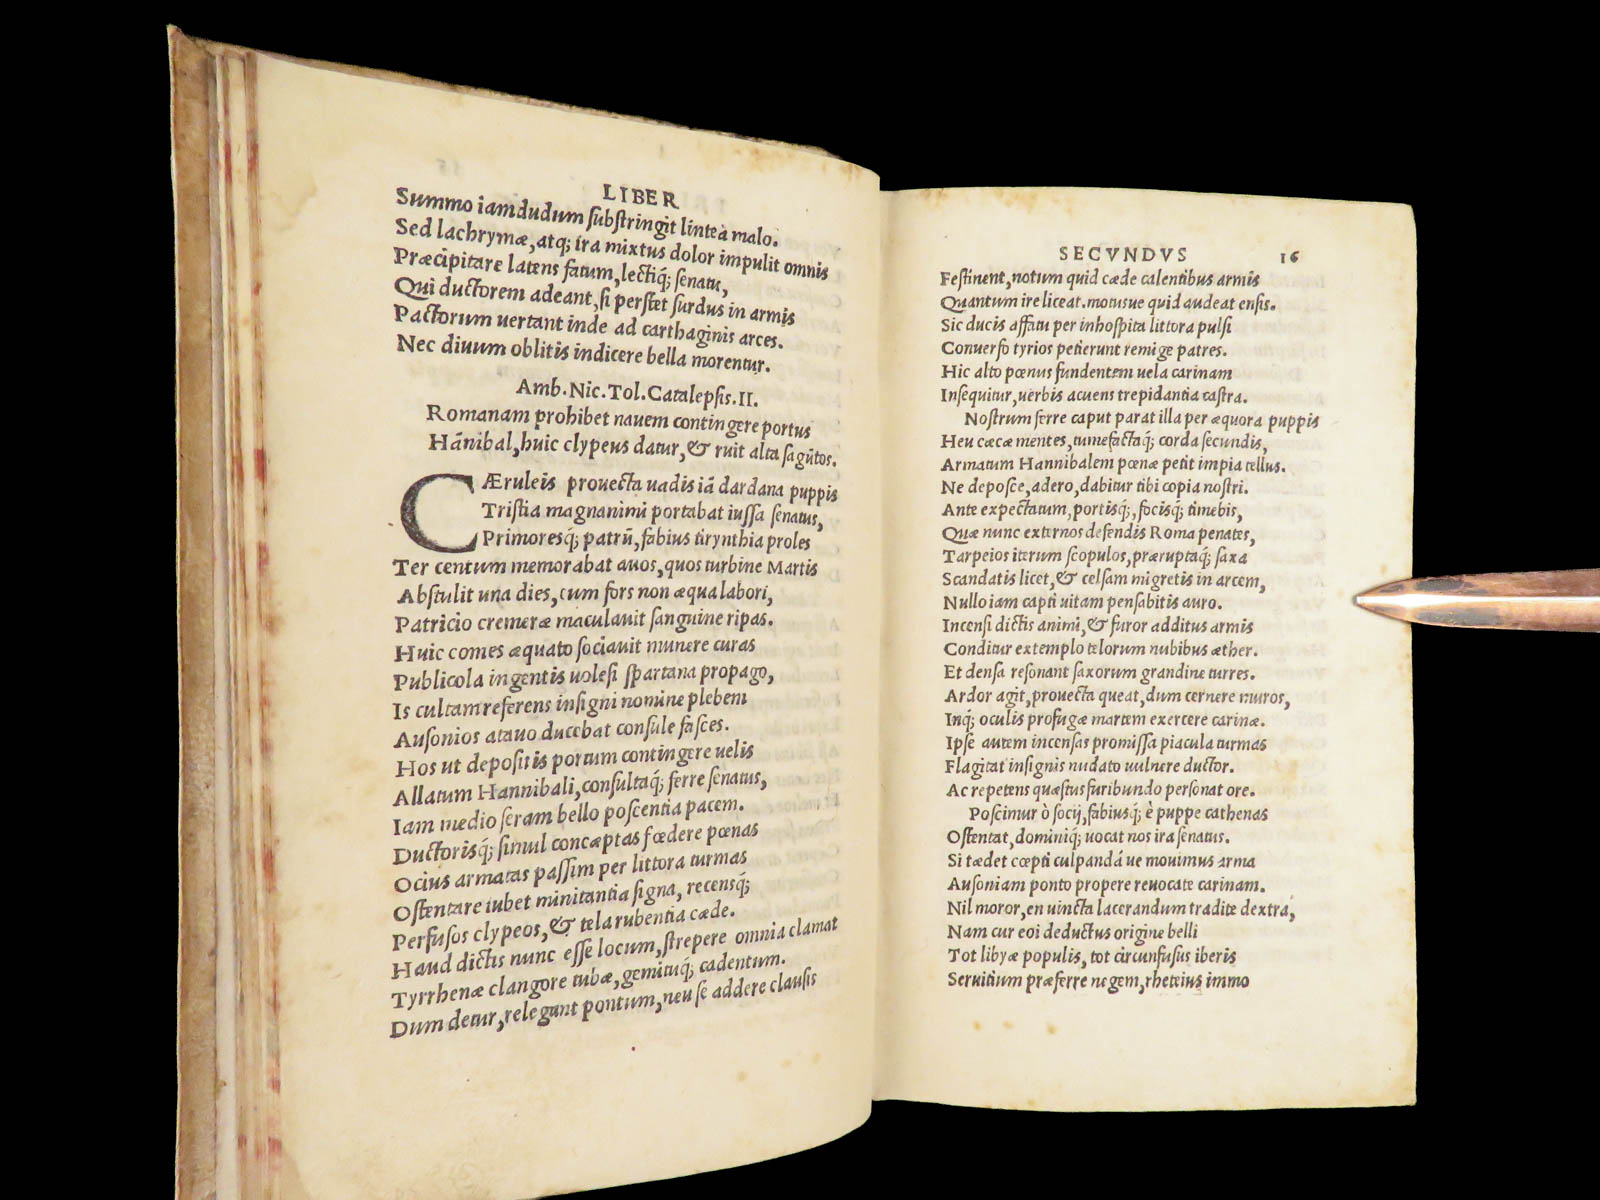 LIBER
Summo iamdudum substringit lintea malo.
Sed lachrymæ, atq; ira mixtus dolor impulit omnis
Præcipitare latens fatum, lectiq́; senatu,
Qui ductorem adeant, si perstet surdus in armis
Pactorum uertant inde ad carthaginis arces.
Nec diuum oblitis indicere bella morentur.
Amb. Nic. Tol. Catalepsis. II.
Romanam prohibet nauem contingere portus
Hānibal, huic clypeus datur, & ruit alta sagūtos.
CÆruleis prouecta uadis iā dardana puppis
Tristia magnanimi portabat iussa senatus,
Primoresq́; patrū, fabius tirynthia proles
Ter centum memorabat auos, quos turbine Martis
Abstulit una dies, cum fors non æqua labori,
Patricio cremeræ maculauit sanguine ripas.
Huic comes æquato sociauit munere curas
Publicola ingentis uolesi spartana propago,
Is cultam referens insigni nomine plebem
Ausonios atauo ducebat consule fasces.
Hos ut depositis portum contingere uelis
Allatum Hannibali, consultaq́; ferre senatus,
Iam medio seram bello poscentia pacem.
Ductorisq́; simul concæptas fœdere pœnas
Ocius armatas passim per littora turmas
Ostentare iubet minitantia signa, recensq́;
Perfusos clypeos, & tela rubentia cæde.
Haud dictis nunc esse locum, strepere omnia clamat
Tyrrhenæ clangore tubæ, gemituq́; cadentum.
Dum detur, relegant pontum, neu se addere clausis
SECVNDVS 16
Festinent, notum quid cæde calentibus armis
Quantum ire liceat. motusue quid audeat ensis.
Sic ducis affatu per inhospita littora pulsi
Conuerso tyrios petierunt remige patres.
Hic alto pœnus fundentem uela carinam
Insequitur, uerbis acuens trepidantia castra.
Nostrum ferre caput parat illa per æquora puppis
Heu cæcæ mentes, tumefactaq́; corda secundis,
Armatum Hannibalem pœnæ petit impia tellus.
Ne deposce, adero, dabitur tibi copia nostri.
Ante expectatum, portisq́;, focisq́; timebis,
Quæ nunc externos defendis Roma penates,
Tarpeios iterum scopulos, præruptaq́; saxa
Scandatis licet, & celsam migretis in arcem,
Nullo iam capti uitam pensabitis auro.
Incensi dictis animi, & furor additus armis
Conditur extemplo telorum nubibus æther.
Et densa resonant saxorum grandine turres.
Ardor agit, prouecta queat, dum cernere muros,
Inq́; oculis profugæ martem exercere carinæ.
Ipse autem incensas promissa piacula turmas
Flagitat insignis nudato uulnere ductor.
Ac repetens quæstus furibundo personat ore.
Poscimur ò socij, fabiusq́; è puppe cathenas
Ostentat, dominiq́; uocat nos ira senatus.
Si tædet cœpti culpandá ue mouimus arma
Ausoniam ponto propere reuocate carinam.
Nil moror, en uincta lacerandum tradite dextrá,
Nam cur eoi deductus origine belli
Tot libyæ populis, tot circunfusus iberis
Seruitium præferre negem, rheteius immo